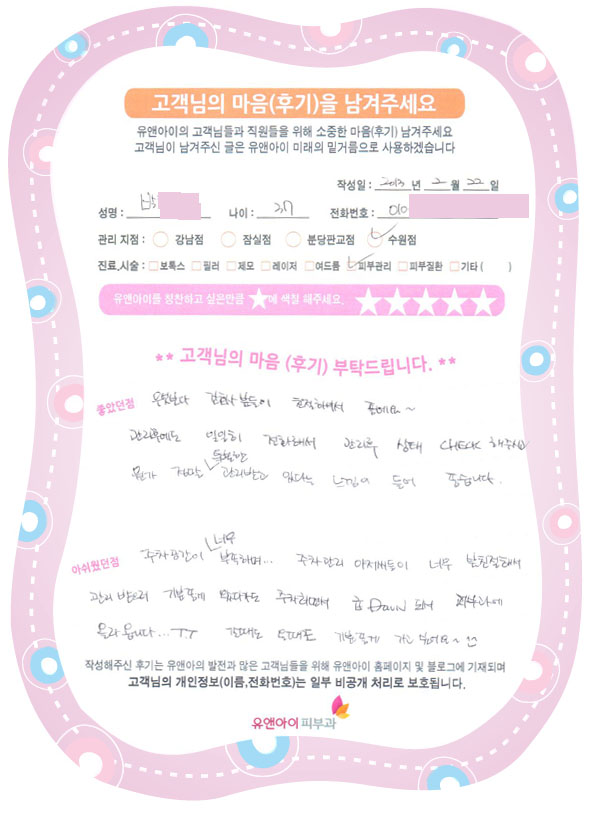 고객님의 마음(후기)을 남겨주세요
유앤아이의 고객님들과 직원들을 위해 소중한 마음(후기) 남겨주세요
고객님이 남겨주신 글은 유앤아이 미래의 밑거름으로 사용하겠습니다
작성일 : 2013 년 2 월 22 일
성명 : 박 나이 : 37 전화번호 : 010
관리 지점 : 강남점 잠실점 분당판교점 수원점
진료,시술 : 보톡스 필러 제모 레이저 여드름 피부관리 피부질환 기타 ( )
유앤아이를 칭찬하고 싶은만큼 ★에 색칠 해주세요. ★★★★★
** 고객님의 마음 (후기) 부탁드립니다. **
좋았던점 친절하셔서 좋아요~
관리후에도 일일히 전화해서 관리후 상태 CHECK 해주시고
뭔가 정말 특별한 관리받고 있다는 느낌이 들어 좋습니다.
아쉬웠던점 주차공간이 너무 부족하며... 주차관리 아저씨들이 너무 불친절해서
관리 받으러 기분좋게 왔다가도 주차하면서 급 Down 되어 피부과에
올라옵니다... T.T 갈때도 올때도 기분좋게 가고 싶어요~ ^^
작성해주신 후기는 유앤아의 발전과 많은 고객님들을 위해 유앤아이 홈페이지 및 블로그에 기재되며
고객님의 개인정보(이름,전화번호)는 일부 비공개 처리로 보호됩니다.
유앤아이 피부과